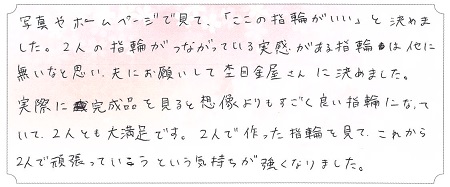 写真やホームページで見て、「ここの指輪がいい」と決めま
した。2人の指輪がつながっている実感がある指輪は他に
無いなと思い、夫にお願いして杢目金屋さんに決めました。
実際に完成品を見ると想像よりもすごく良い指輪になって
いて、2人とも大満足です。2人で作った指輪を見て、これから
2人で頑張っていこうという気持ちが強くなりました。